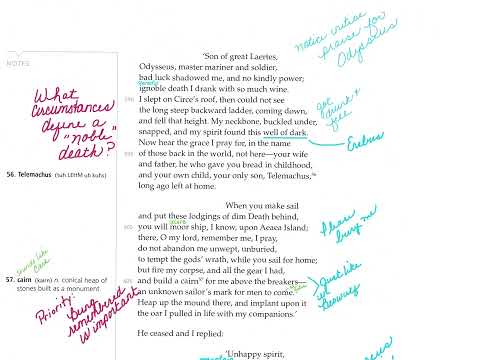 notice initial
praise for
Odysseus
'Son of great Laertes,
NOTES
Odysseus, master mariner and soldier,
bad luck shadowed me, and no kindly power;
ignoble death I drank with so much wine.
590 I slept on Circe's roof, then could not see
the long steep backward ladder, coming down,
and fell that height. My neckbone, buckled under,
snapped, and my spirit found this well of dark.
got
drunk +
fell
Erebus
What
circumstances
define a
"noble"
death?
Now hear the grace I pray for, in the name
595 of those back in the world, not here—your wife
and father, he who gave you bread in childhood,
and your own child, your only son, Telemachus,56
long ago left at home.
56. Telemachus (tuh LEHM uh kuhs)
When you make sail
and put these lodgings of dim Death behind,
you will moor ship, I know, upon Aeaea Island;
there, O my lord, remember me, I pray,
do not abandon me unwept, unburied,
to tempt the gods' wrath, while you sail for home;
but fire my corpse, and all the gear I had,
605 and build a cairn57 for me above the breakers—
an unknown sailor's mark for men to come.
Heap up the mound there, and implant upon it
the oar I pulled in life with my companions.'
Please
bury me
sounds like
care
57. cairn (kairn) n. conical heap of
stones built as a monument.
Just like
in
Beowulf
Priority:
Being
remembered
is important
He ceased and I replied:
'Unhappy spirit,